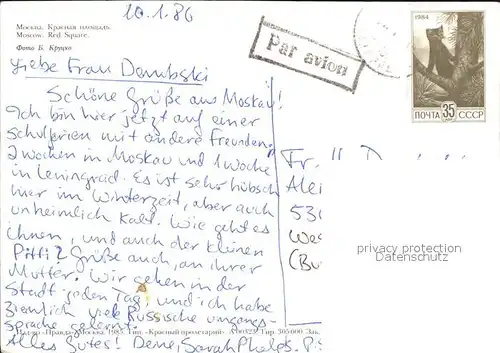 10.1.86
Москва. Красная площадь.
Moscow. Red Square.
Фото Б. Круцко
Par avion
1984
ПОЧТА 35 СССР
Liebe Frau Dembski
Schöne Grüße aus Moskau!
Ich bin hier jetzt auf einer
Schulferien mit andere Freunden.
2 Wochen in Moskau und 1 Woche
in Leningrad. Es ist sehr hübsch
hier im Winterzeit, aber auch
unheimlich kalt. Wie geht es
Ihnen, und auch der kleinen
Pitti? Grüße auch, an ihrer
Mutter. Wir gehen in der
Stadt jeden Tag, und ich habe
ziemlich viele Russische umgangs-
sprache gelernt.
Alles Gutes! Deine, Sarah Phelps. P.S
Fr.
Alei
530
Wes
(Bu
privacy protection
Datenschutz
«Правда». Москва. 1985. Тип. «Красный пролетарий». Тир. 305 000. Зак.